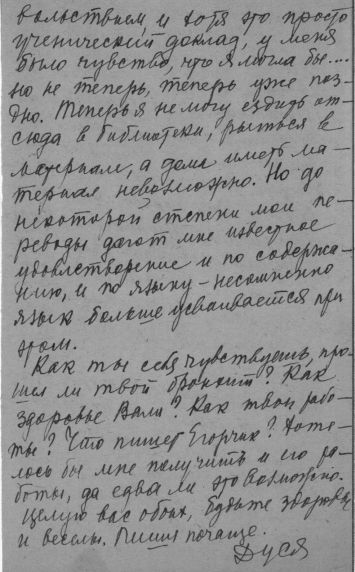 вольствием, и хотя это просто
ученический доклад, у меня
было чувство, что я могла бы....
но не теперь, теперь уже поз-
дно. Теперь я не могу ездить от-
сюда в библиотеки, рыться в
материале, а дома иметь ма-
териал невозможно. Но до
некоторой степени мои пе-
реводы дают мне известное
удовлетворение и по содержа-
нию, и по языку – несомненно
язык больше усваивается при
этом.
Как ты себя чувствуешь, про-
шел ли твой бронхит? Как
здоровье Вали? Как твои рабо-
ты? Что пишет Егорчик? Хоте-
лось бы мне получить и его ра-
боты, да едва ли это возможно.
Целую вас обоих, будьте здоровы
и веселы. Пиши почаще.
Дуся